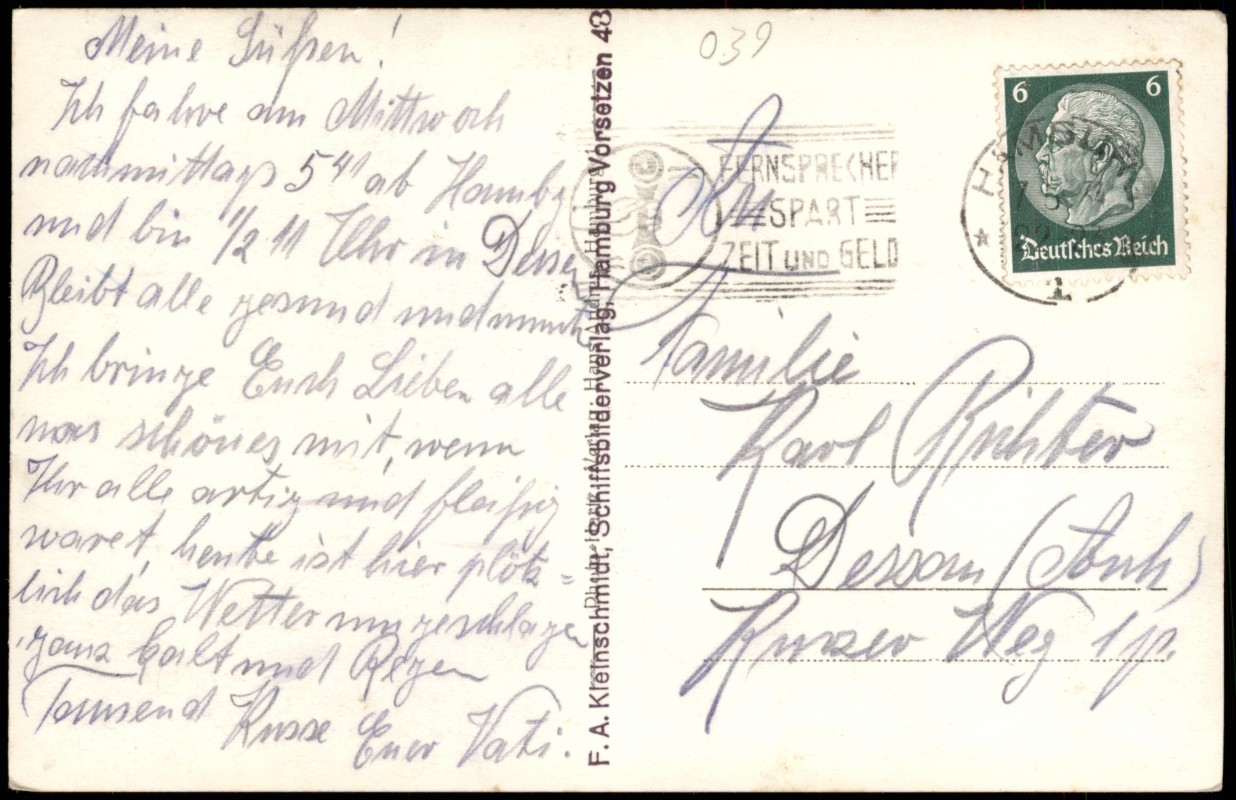 Meine Süßen!
Ich fahre am Mittwoch
nachmittags 5 41 ab Hambg
und bin 1/2 11 Uhr in Dessau
Bleibt alle gesund und munter
Ich bringe Euch Lieben alle
was schönes mit, wenn
Ihr alle artig und fleißig
waret, heute ist hier plötz=
lich das Wetter umgeschlagen
ganz kalt und Regen
Tausend Küsse Euer Vati.
F. A. Kleinschmidt, Schiffsbilderverlag, Hamburg Vorsetzen 43
039
FERNSPRECHER
SPART
ZEIT UND GELD
HAMBURG
1
6 6
Deutsches Reich
An
Familie
Karl Richter
Dessau (Anh)
Kurzer Weg 1 p.